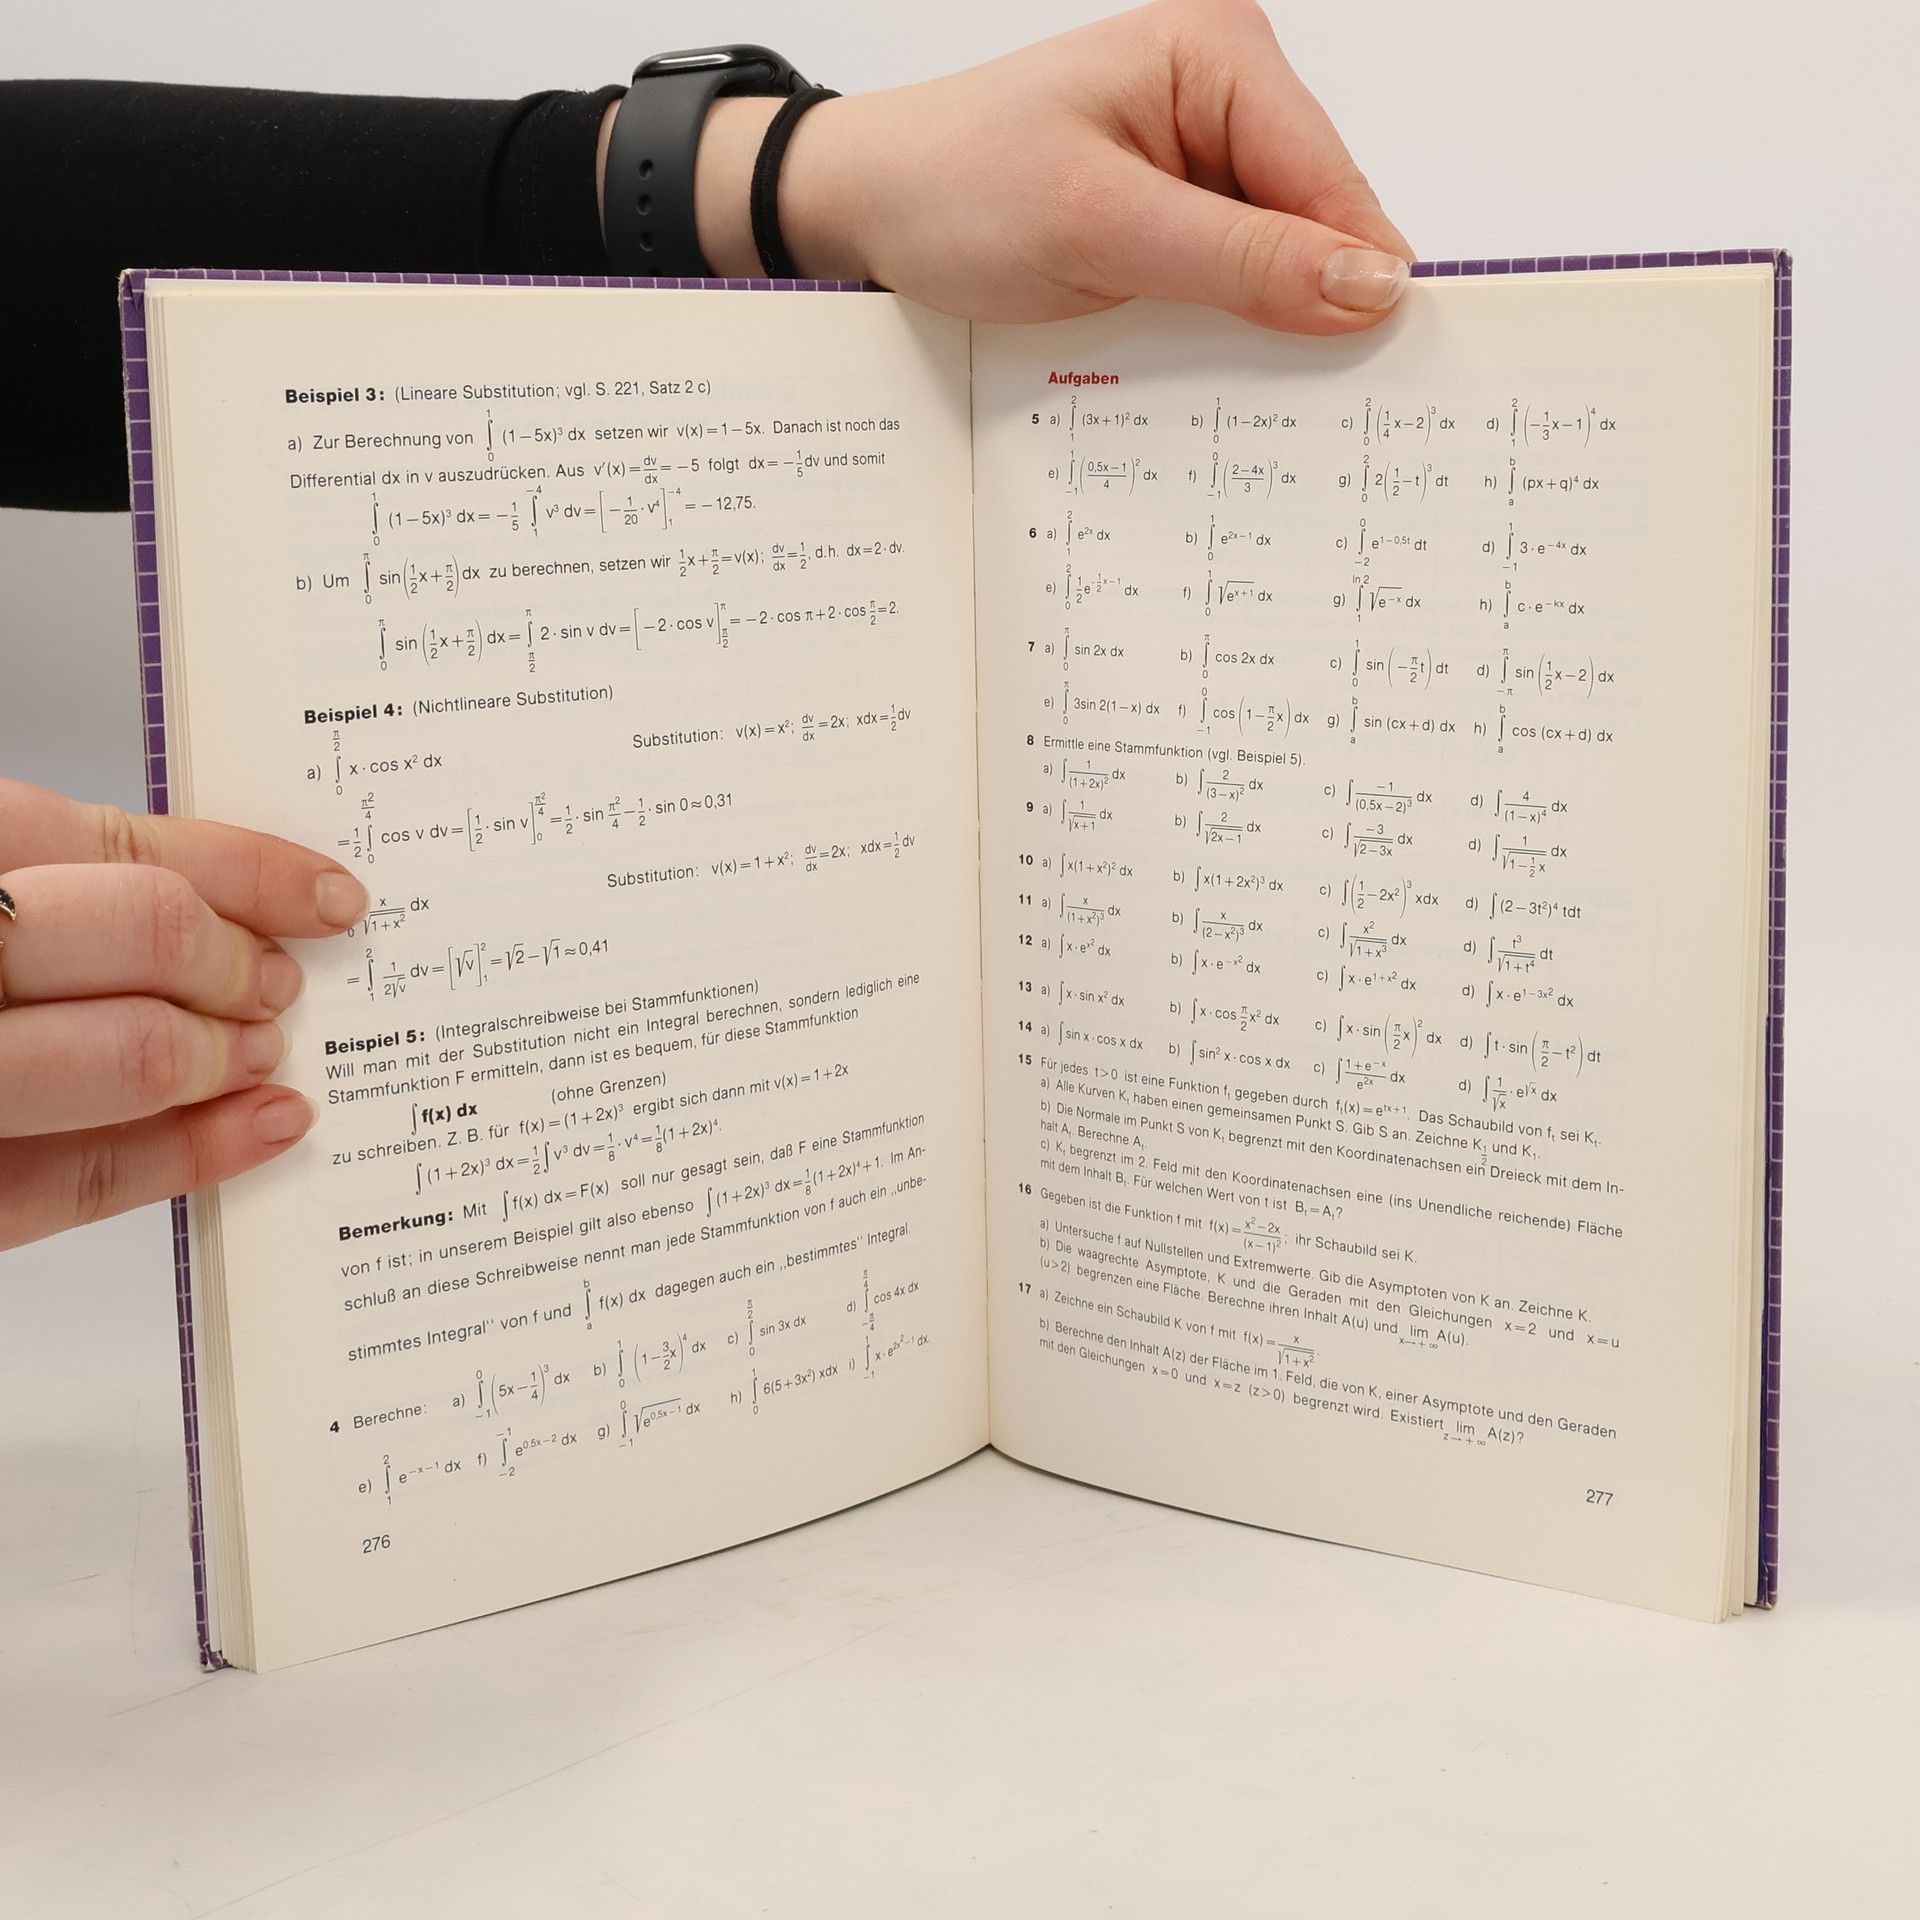 Beispiel 3: (Lineare Substitution; vgl. S. 221, Satz 2 c)
a) Zur Berechnung von ∫₀¹ (1−5x)³ dx setzen wir v(x)=1−5x. Danach ist noch das
Differential dx in v auszudrücken. Aus v′(x)=dv/dx=−5 folgt dx=−1/5 dv und somit
∫₀¹ (1−5x)³ dx=−1/5 ∫₁⁻⁴ v³ dv=[−1/20·v⁴]₁⁻⁴=−12,75.
b) Um ∫₀^π sin(1/2 x+π/2) dx zu berechnen, setzen wir 1/2 x+π/2=v(x); dv/dx=1/2, d.h. dx=2·dv.
∫₀^π sin(1/2 x+π/2) dx=∫_{π/2}^π 2·sin v dv=[−2·cos v]_{π/2}^π=−2·cos π+2·cos π/2=2.
Beispiel 4: (Nichtlineare Substitution)
a) ∫₀^{π/2} x·cos x² dx Substitution: v(x)=x²; dv/dx=2x; xdx=1/2 dv
=1/2 ∫₀^{π²/4} cos v dv=[1/2·sin v]₀^{π²/4}=1/2·sin π²/4−1/2·sin 0≈0,31
x/√(1+x²) dx Substitution: v(x)=1+x²; dv/dx=2x; xdx=1/2 dv
=∫₁² 1/(2√v) dv=[√v]₁²=√2−√1≈0,41
Beispiel 5: (Integralschreibweise bei Stammfunktionen)
Will man mit der Substitution nicht ein Integral berechnen, sondern lediglich eine
Stammfunktion F ermitteln, dann ist es bequem, für diese Stammfunktion
∫f(x) dx (ohne Grenzen)
zu schreiben. Z. B. für f(x)=(1+2x)³ ergibt sich dann mit v(x)=1+2x
∫(1+2x)³ dx=1/2 ∫v³ dv=1/8·v⁴=1/8(1+2x)⁴.
Bemerkung: Mit ∫f(x) dx=F(x) soll nur gesagt sein, daß F eine Stammfunktion
von f ist; in unserem Beispiel gilt also ebenso ∫(1+2x)³ dx=1/8(1+2x)⁴+1. Im An-
schluß an diese Schreibweise nennt man jede Stammfunktion von f auch ein „unbe-
stimmtes Integral“ von f und ∫ₐᵇ f(x) dx dagegen auch ein „bestimmtes“ Integral.
4 Berechne: a) ∫₋₁⁰ (5x−1/4)³ dx b) ∫₀¹ (1−3/2 x)⁴ dx c) ∫₀^{π/2} sin 3x dx d) ∫_{−π/4}^{π/4} cos 4x dx
e) ∫₁² e^{−x−1} dx f) ∫₋₂⁻¹ e^{0,5x−2} dx g) ∫₋₁⁰ √(e^{0,5x−1}) dx h) ∫₀¹ 6(5+3x²) xdx i) ∫₋₁¹ x·e^{2x²−1} dx.
276
Aufgaben
5 a) ∫₁² (3x+1)² dx b) ∫₀¹ (1−2x)² dx c) ∫₀² (1/4 x−2)³ dx d) ∫₁² (−1/3 x−1)⁴ dx
e) ∫₋₁¹ ((0,5x−1)/4)² dx f) ∫₋₁⁰ ((2−4x)/3)³ dx g) ∫₀² 2(1/2−t)³ dt h) ∫ₐᵇ (px+q)⁴ dx
6 a) ∫₁² e^{2x} dx b) ∫₀¹ e^{2x−1} dx c) ∫₋₂⁰ e^{1−0,5t} dt d) ∫₋₁¹ 3·e^{−4x} dx
e) ∫₀² 1/2 e^{−1/2 x−1} dx f) ∫₀¹ √(e^{x+1}) dx g) ∫₁^{ln 2} √(e^{−x}) dx h) ∫ₐᵇ c·e^{−kx} dx
7 a) ∫₀^π sin 2x dx b) ∫₀^π cos 2x dx c) ∫₀¹ sin(−π/2 t) dt d) ∫_{−π}^π sin(1/2 x−2) dx
e) ∫₀^π 3sin 2(1−x) dx f) ∫₋₁⁰ cos(1−π/2 x) dx g) ∫ₐᵇ sin (cx+d) dx h) ∫ₐᵇ cos (cx+d) dx
8 Ermittle eine Stammfunktion (vgl. Beispiel 5).
a) ∫1/(1+2x)² dx b) ∫2/(3−x)² dx c) ∫−1/(0,5x−2)³ dx d) ∫4/(1−x)⁴ dx
9 a) ∫1/√(x+1) dx b) ∫2/√(2x−1) dx c) ∫−3/√(2−3x) dx d) ∫1/√(1−1/2 x) dx
10 a) ∫x(1+x²)² dx b) ∫x(1+2x²)³ dx c) ∫(1/2−2x²)³ xdx d) ∫(2−3t²)⁴ tdt
11 a) ∫x/(1+x²)³ dx b) ∫x/(2−x²)³ dx c) ∫x²/√(1+x³) dx d) ∫t³/√(1+t⁴) dt
12 a) ∫x·e^{x²} dx b) ∫x·e^{−x²} dx c) ∫x·e^{1+x²} dx d) ∫x·e^{1−3x²} dx
13 a) ∫x·sin x² dx b) ∫x·cos π/2 x² dx c) ∫x·sin(π/2 x)² dx d) ∫t·sin(π/2−t²) dt
14 a) ∫sin x·cos x dx b) ∫sin² x·cos x dx c) ∫(1+e^{−x})/e^{2x} dx d) ∫1/√x·e^{√x} dx
15 Für jedes t>0 ist eine Funktion fₜ gegeben durch fₜ(x)=e^{tx+1}. Das Schaubild von fₜ sei Kₜ.
a) Alle Kurven Kₜ haben einen gemeinsamen Punkt S. Gib S an. Zeichne K_{1/2} und K₁.
b) Die Normale im Punkt S von Kₜ begrenzt mit den Koordinatenachsen ein Dreieck mit dem In-
halt Aₜ. Berechne Aₜ.
c) Kₜ begrenzt im 2. Feld mit den Koordinatenachsen eine (ins Unendliche reichende) Fläche
mit dem Inhalt Bₜ. Für welchen Wert von t ist Bₜ=Aₜ?
16 Gegeben ist die Funktion f mit f(x)=(x²−2x)/(x−1)²; ihr Schaubild sei K.
a) Untersuche f auf Nullstellen und Extremwerte. Gib die Asymptoten von K an. Zeichne K.
b) Die waagrechte Asymptote, K und die Geraden mit den Gleichungen x=2 und x=u
(u>2) begrenzen eine Fläche. Berechne ihren Inhalt A(u) und lim_{x→+∞} A(u).
17 a) Zeichne ein Schaubild K von f mit f(x)=x/√(1+x²).
b) Berechne den Inhalt A(z) der Fläche im 1. Feld, die von K, einer Asymptote und den Geraden
mit den Gleichungen x=0 und x=z (z>0) begrenzt wird. Existiert lim_{z→+∞} A(z)?
277